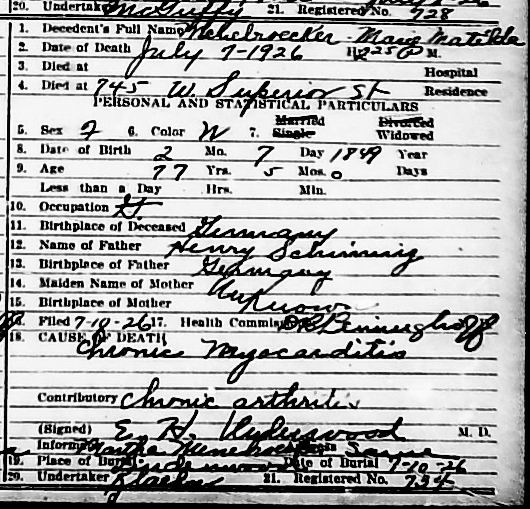 20. Undertaker McGuffy 21. Registered No. 728
1. Decedent's Full Name Menebroecker - Marie Matilda
2. Date of Death July 7-1926 Hr. 2 25 P M.
3. Died at Hospital
4. Died at 745 W. Superior St Residence
PERSONAL AND STATISTICAL PARTICULARS
5. Sex F 6. Color W 7. Married Single Divorced Widowed
8. Date of Birth 2 Mo. 7 Day 1849 Year
9. Age 77 Yrs. 5 Mos. 0 Days
Less than a Day Hrs. Min.
10. Occupation H
11. Birthplace of Deceased Germany
12. Name of Father Henry
13. Birthplace of Father Germany
14. Maiden Name of Mother Unknown
15. Birthplace of Mother
16. Filed 7-10-26 17. Health Commis
18. CAUSE OF DEATH
Chronic Myocarditis
Contributory Chronic arthritis
(Signed) E. H. Underwood M. D.
Informant Martha Menebroecker Address Same
19. Place of Burial Lindenwood Date of Burial 7-10-26
20. Undertaker Klaehn 21. Registered No. 734